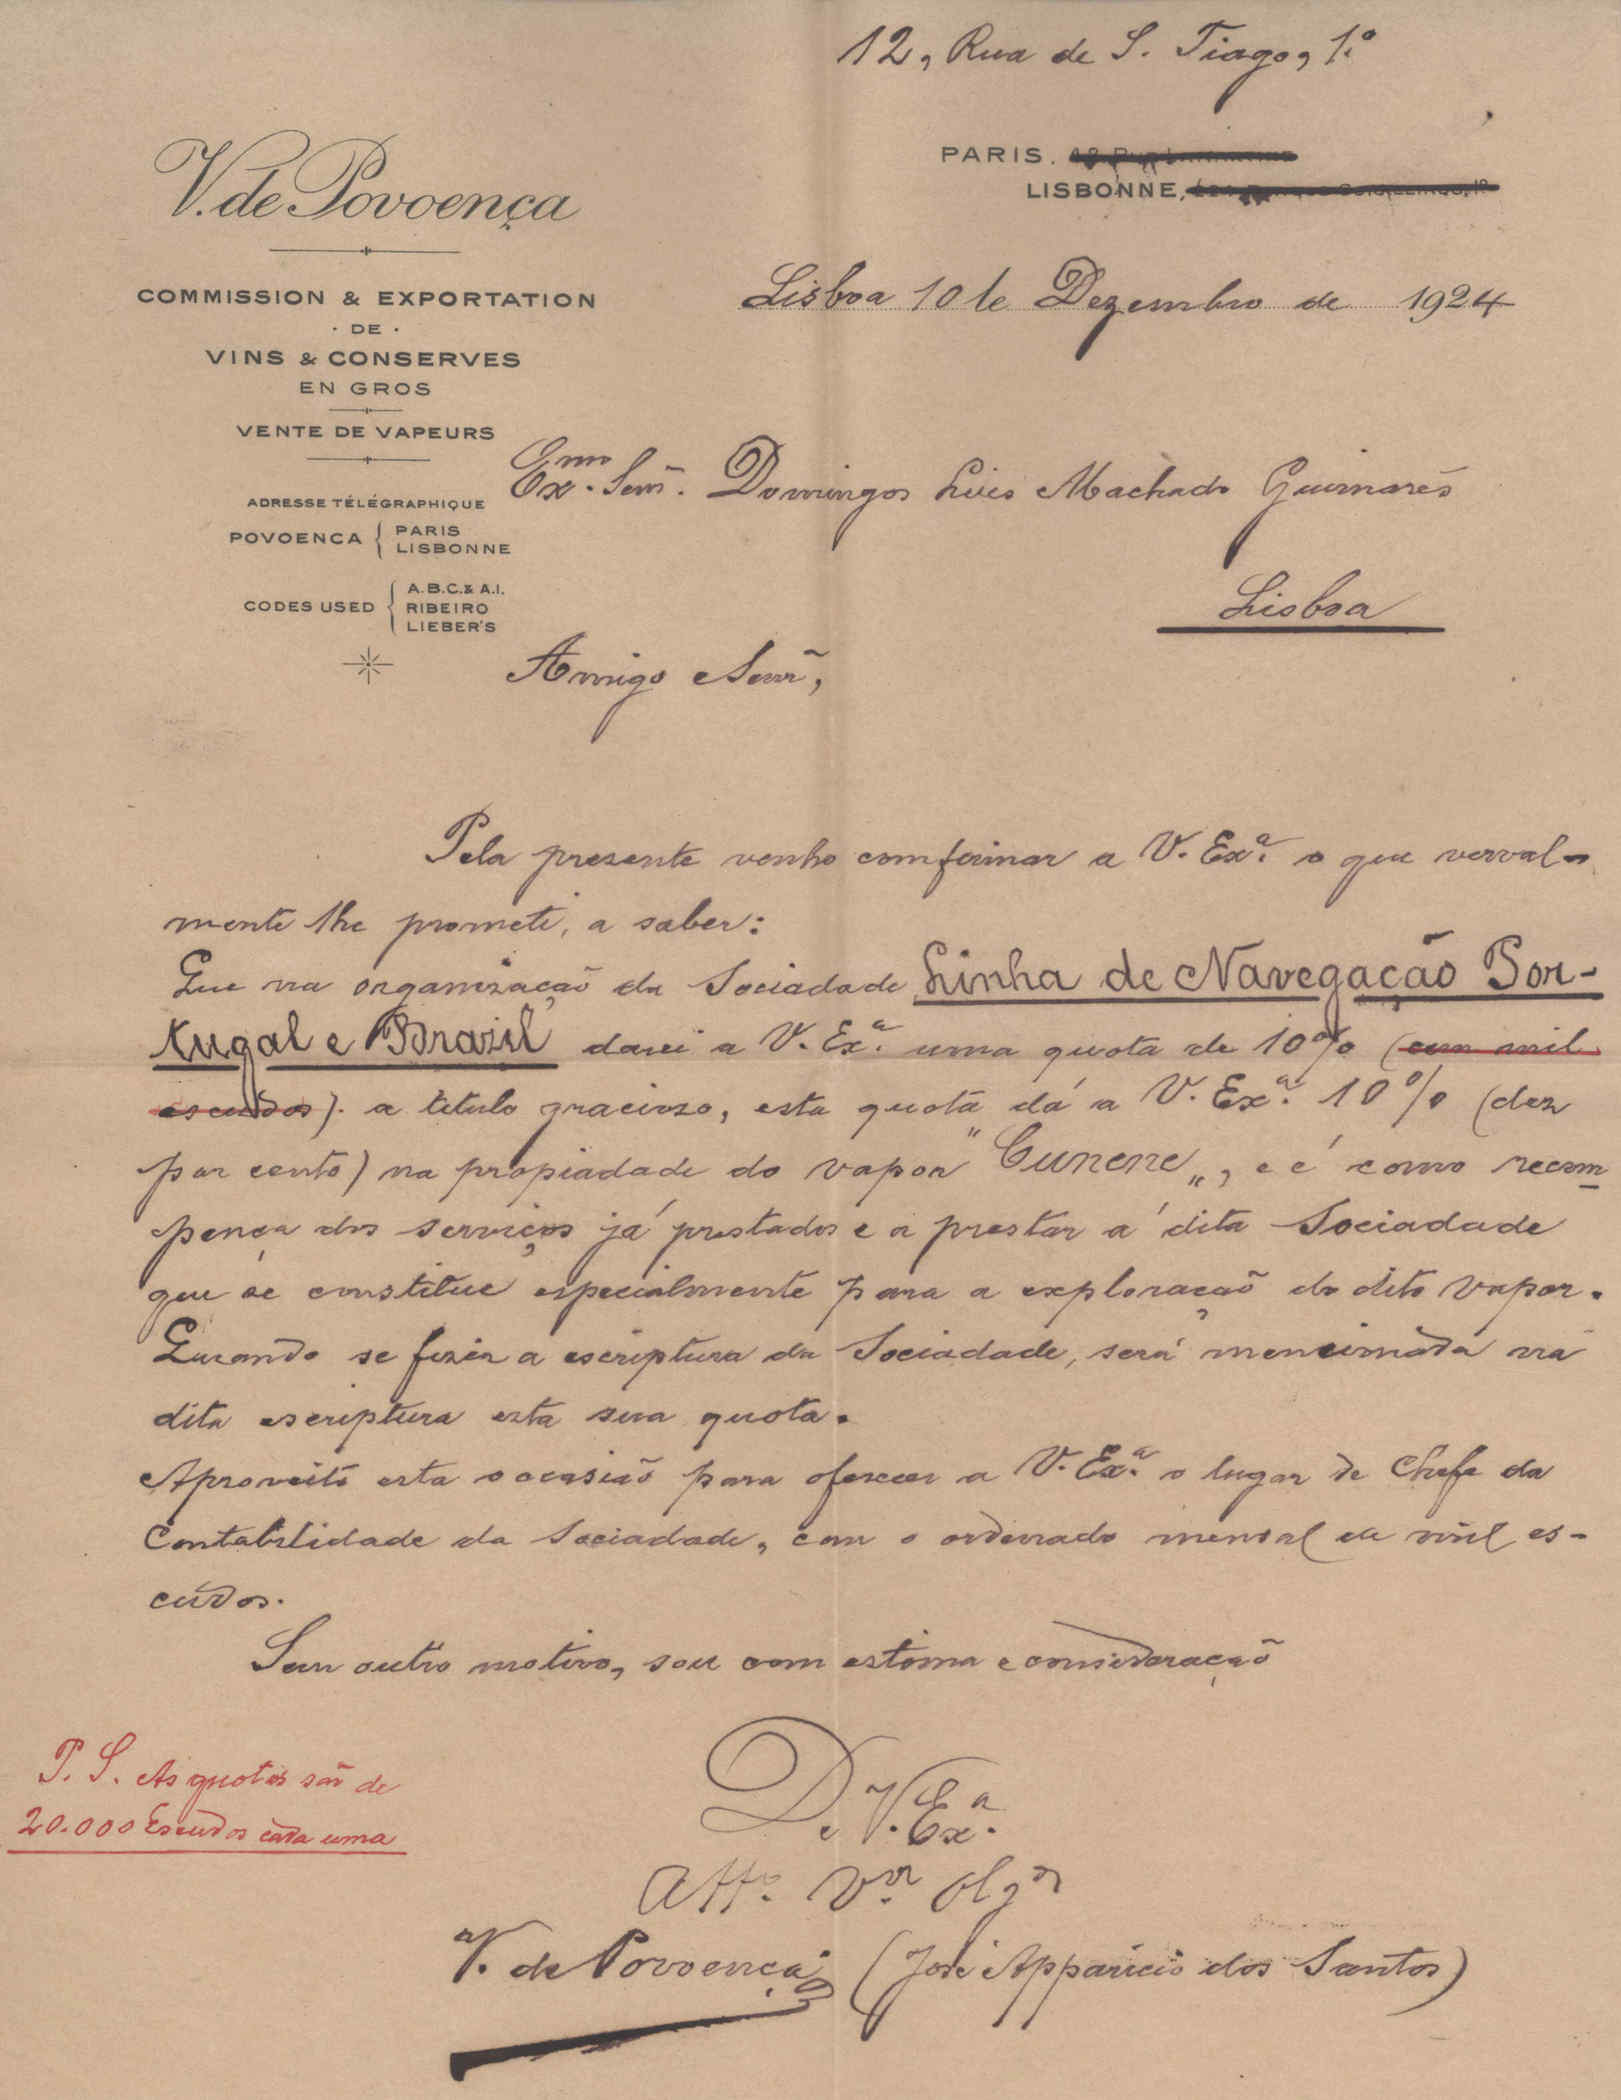 12, Rua de S. Tiago, 1.º
PARIS.
LISBONNE,
V. de Povoença
COMMISSION & EXPORTATION
· DE ·
VINS & CONSERVES
EN GROS
VENTE DE VAPEURS
ADRESSE TÉLÉGRAPHIQUE
POVOENCA { PARIS
LISBONNE
CODES USED { A.B.C. & A.I.
RIBEIRO
LIEBER'S
Lisboa 10 de Dezembro de 1924
Exmo. Senr. Domingos Luis Machado Guimarães
Lisboa
Amigo e Senr,
Pela presente venho comfirmar a V. Exª. o que verval-
mente lhe prometi, a saber:
Que na organização da Sociadade Linha de Navegação Por-
tugal e Brazil darei a V. Exª. uma quota de 10% (cem mil
escudos). a titulo gracioso, esta quota dá a V. Exª. 10% (dez
por cento) na propiadade do vapor "Cunene", e é como recom
pença dos serviços já prestados e a prestar á dita Sociadade
que se constitue especialmente para a exploração do dito vapor.
Quando se fizer a escriptura da Sociadade, será mencionada na
dita escriptura esta sua quota.
Aproveito esta occasião para oferecer a V. Exª. o lugar de Chefe da
Contabilidade da Sociadade, com o ordenado mensal de mil es-
cudos.
Sem outro motivo, sou com estima e consideração
De V. Exª.
Attº. Vor. Obgº
V. de Povoença (José Apparicio dos Santos)
P. S. As quotas são de
20.000 Escudos cada uma